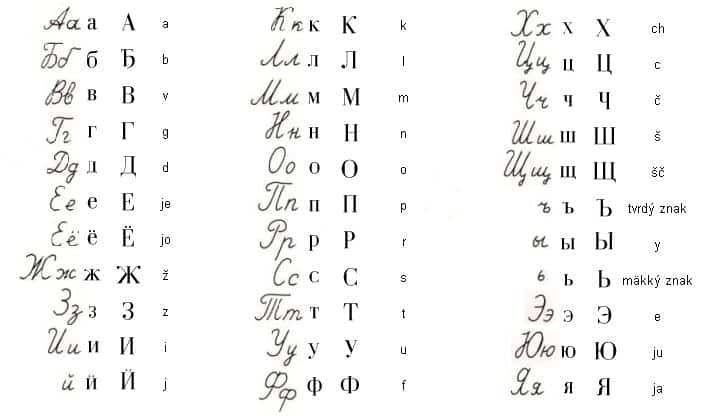 Аа а А a
Бб б Б b
Вв в В v
Гг г Г g
Дд д Д d
Ее е Е je
Её ё Ё jo
Жж ж Ж ž
Зз з З z
Ии и И i
й й Й j
Кк к К k
Лл л Л l
Мм м М m
Нн н Н n
Оо о О o
Пп п П p
Рр р Р r
Сс с С s
Тт т Т t
Уу у У u
Фф ф Ф f
Хх х Х ch
Цц ц Ц c
Чч ч Ч č
Шш ш Ш š
Щщ щ Щ šč
ъ ъ Ъ tvrdý znak
ы ы Ы y
ь ь Ь mäkký znak
Ээ э Э e
Юю ю Ю ju
Яя я Я ja